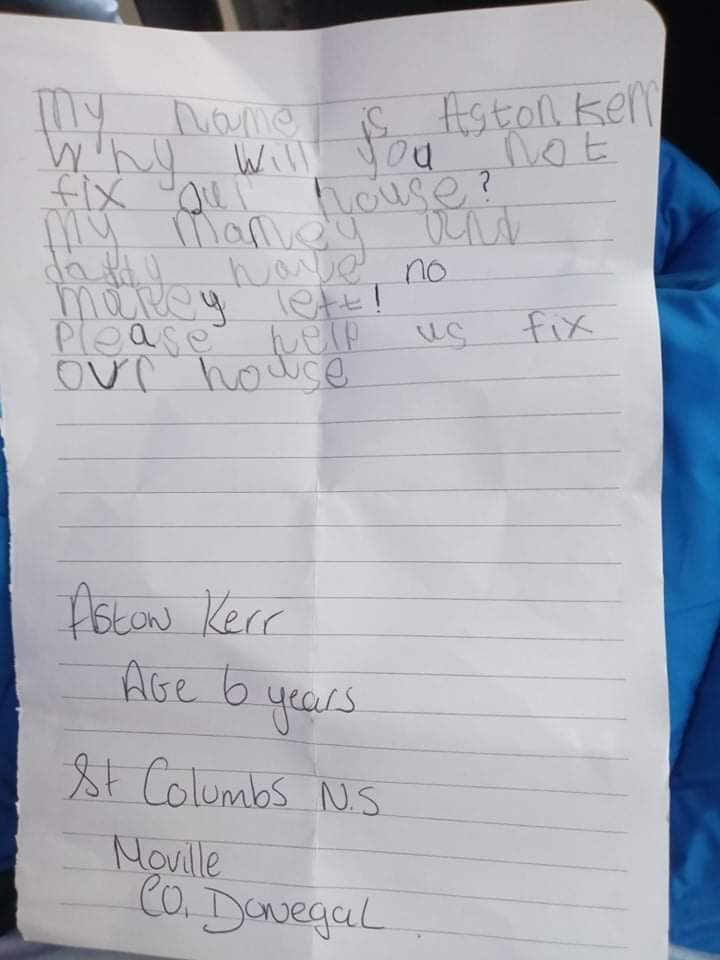 My name is Aston Kerr
Why will you not
fix our house?
My mamey and
daddy have no
money left!
Please help us fix
our house
Aston Kerr
Age 6 years
St Columbs N.S
Moville
Co. Donegal.